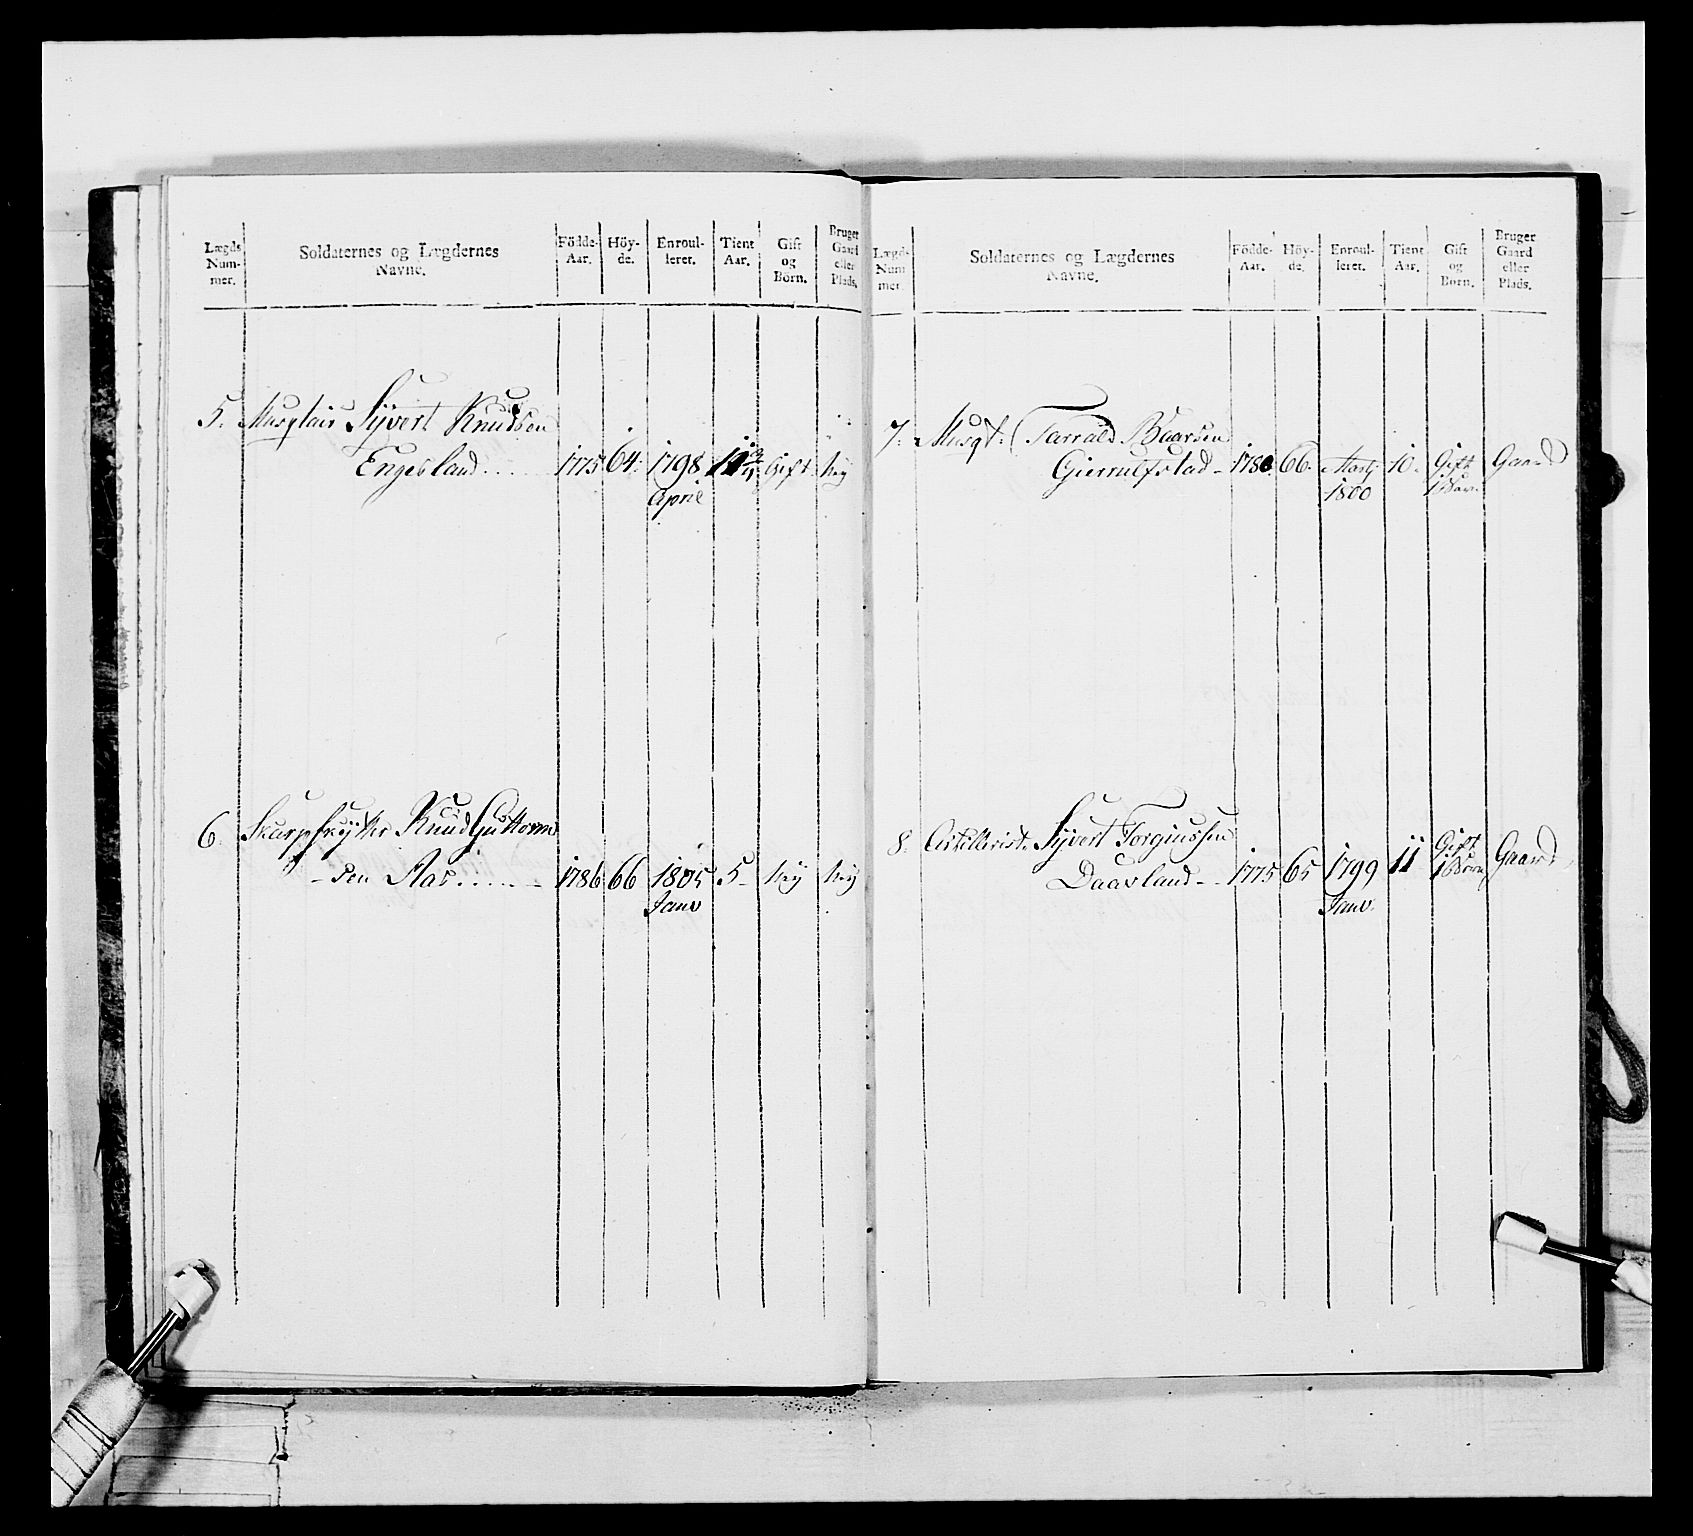 Lægds Num- mer.
Soldaternes og Lægdernes Navne.
Födde- Aar.
Höy- de.
Enroul- leret.
Tient Aar.
Gift og Börn.
Bruger Gaard eller Plads.
5. Musqtair Syvert Knudsen
Engesland 1775 64. 1798 11 Gift Ney
April
6. Skarpskytter Knud Guttorm
-sen Aas 1786 66 1805 5 Ney Ney
Janv
Lægds Num mer.
Soldaternes og Lægdernes Navne.
Födde- Aar.
Höy- de.
Enroul- leret.
Tient Aar.
Gift og Born.
Bruger Gaard eller Plads.
7. Musqt. Tarrald Baarsen
Giermulfstad 1780 66. Martz 10. Gift Gaard
1800 1 Barn
8. Artillerist Syvert Torgiussen
Daasland 1775 65 1799 11 Gift Gaard
Janv. 1 Barn